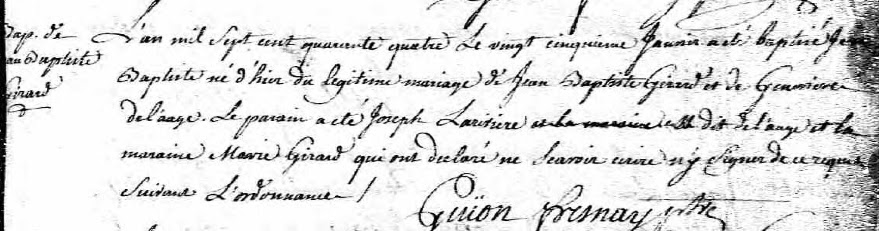 Bap. de
Jean Baptiste
Girard
L'an mil sept cent quarante quatre le vingt cinquieme Janvier a été baptisé Jean
Baptiste né d'hier du legitime mariage de Jean Baptiste Girard et de Genevieve
delaage. Le parain a été Joseph Lariviere et la maraine dit delaage et la
maraine Marie Girard qui ont declaré ne scavoir ecrire ny signer de ce requis
suivant l'ordonnance /
Guïon fresnay ptre